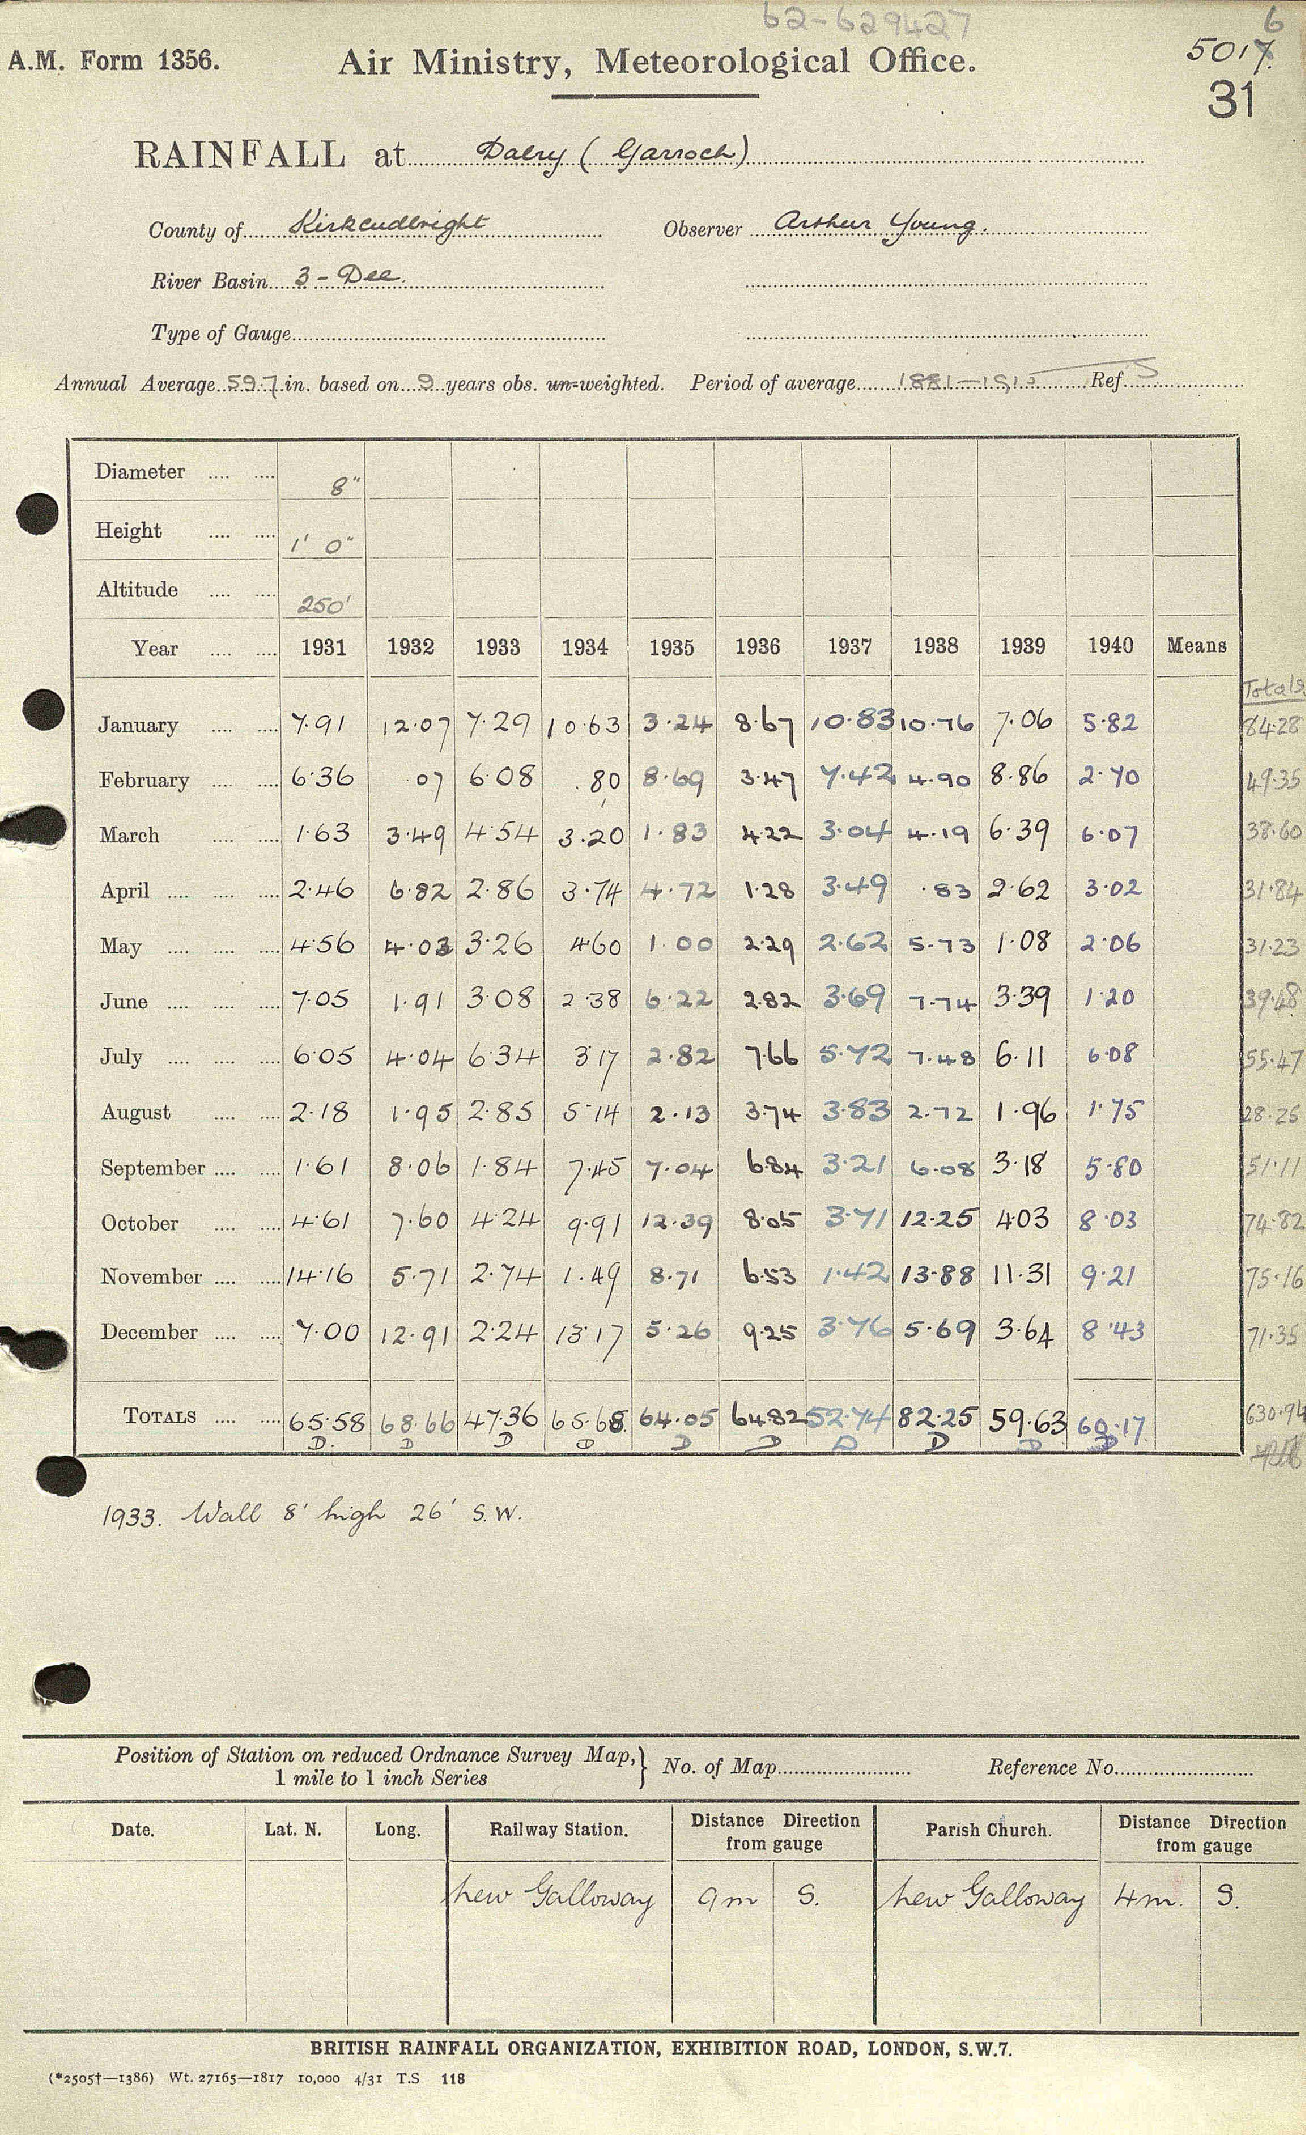 62-629427
6
A.M. Form 1356.
Air Ministry, Meteorological Office.
5017.
31
RAINFALL at Dalry (Garroch)
County of Kirkcudbright Observer Arthur Young.
River Basin 3 - Dee.
Type of Gauge
Annual Average 59.7 in. based on 9 years obs. un-weighted. Period of average 1881-1915 Ref. S
Diameter 8"
Height 1' 0"
Altitude 250'
Year 1931 1932 1933 1934 1935 1936 1937 1938 1939 1940 Means
Totals
January 7.91 12.07 7.29 10.63 3.24 8.67 10.83 10.76 7.06 5.82 84.28
February 6.36 .07 6.08 .80 8.69 3.47 7.42 4.90 8.86 2.70 49.35
March 1.63 3.49 4.54 3.20 1.83 4.22 3.04 4.19 6.39 6.07 38.60
April 2.46 6.82 2.86 3.74 4.72 1.28 3.49 .83 2.62 3.02 31.84
May 4.56 4.03 3.26 4.60 1.00 2.29 2.62 5.73 1.08 2.06 31.23
June 7.05 1.91 3.08 2.38 6.22 2.82 3.69 7.74 3.39 1.20 39.48
July 6.05 4.04 6.34 3.17 2.82 7.66 5.72 7.48 6.11 6.08 55.47
August 2.18 1.95 2.85 5.14 2.13 3.74 3.83 2.72 1.96 1.75 28.25
September 1.61 8.06 1.84 7.45 7.04 6.84 3.21 6.08 3.18 5.80 51.11
October 4.61 7.60 4.24 9.91 12.39 8.05 3.71 12.25 4.03 8.03 74.82
November 14.16 5.71 2.74 1.49 8.71 6.53 1.42 13.88 11.31 9.21 75.16
December 7.00 12.91 2.24 13.17 5.26 9.25 3.76 5.69 3.64 8.43 71.35
TOTALS 65.58 68.66 47.36 65.68 64.05 64.82 52.74 82.25 59.63 60.17 630.94
D. D D D D D D D D D
1933. Wall 8' high 26' S.W.
Position of Station on reduced Ordnance Survey Map, 1 mile to 1 inch Series } No. of Map Reference No.
Date. Lat. N. Long. Railway Station. Distance Direction from gauge Parish Church. Distance Direction from gauge
New Galloway 9m S. New Galloway 4m. S.
BRITISH RAINFALL ORGANIZATION, EXHIBITION ROAD, LONDON, S.W.7.
(*2505†—1386) Wt. 27165—1817 10,000 4/31 T.S 118